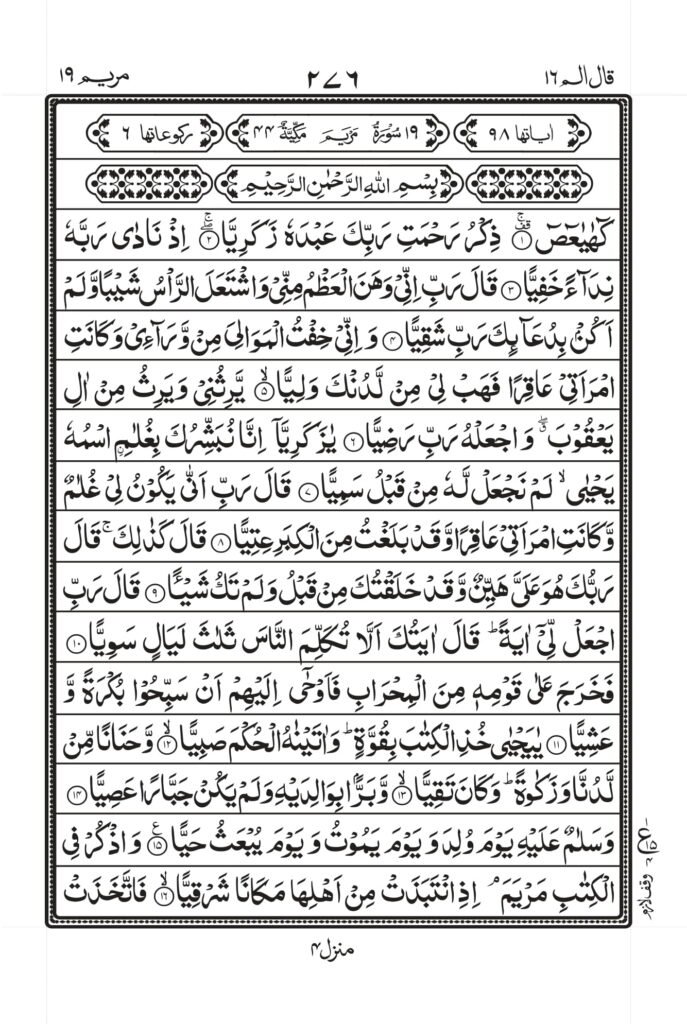 قال الم ١٦ ٢٧٦ مريم ١٩
اٰیاتها ٩٨ ١٩ سُوْرَةُ مَرْیَمَ مَكِّیَّةٌ ٤٤ ركوعاتها ٦
بِسْمِ اللّٰهِ الرَّحْمٰنِ الرَّحِیْمِ
كٓهٰیٰعٓصٓ ۚ۫ ۝١ ذِكْرُ رَحْمَتِ رَبِّكَ عَبْدَهٗ زَكَرِیَّا ۖۚ ۝٢ اِذْ نَادٰى رَبَّهٗ
نِدَآءً خَفِیًّا ۝٣ قَالَ رَبِّ اِنِّیْ وَهَنَ الْعَظْمُ مِنِّیْ وَاشْتَعَلَ الرَّاْسُ شَیْبًا وَّلَمْ
اَكُنْۢ بِدُعَآىِٕكَ رَبِّ شَقِیًّا ۝٤ وَ اِنِّیْ خِفْتُ الْمَوَالِیَ مِنْ وَّرَآءِیْ وَ كَانَتِ
امْرَاَتِیْ عَاقِرًا فَهَبْ لِیْ مِنْ لَّدُنْكَ وَلِیًّا ۙ ۝٥ یَّرِثُنِیْ وَیَرِثُ مِنْ اٰلِ
یَعْقُوْبَ ۖۗ وَ اجْعَلْهُ رَبِّ رَضِیًّا ۝٦ یٰزَكَرِیَّاۤ اِنَّا نُبَشِّرُكَ بِغُلٰمِ ِ۟اسْمُهٗ
یَحْیٰى ۙ لَمْ نَجْعَلْ لَّهٗ مِنْ قَبْلُ سَمِیًّا ۝٧ قَالَ رَبِّ اَنّٰى یَكُوْنُ لِیْ غُلٰمٌ
وَّكَانَتِ امْرَاَتِیْ عَاقِرًا وَّقَدْ بَلَغْتُ مِنَ الْكِبَرِ عِتِیًّا ۝٨ قَالَ كَذٰلِكَ ۚ قَالَ
رَبُّكَ هُوَ عَلَیَّ هَیِّنٌ وَّ قَدْ خَلَقْتُكَ مِنْ قَبْلُ وَلَمْ تَكُ شَیْـًٔا ۝٩ قَالَ رَبِّ
اجْعَلْ لِّیْۤ اٰیَةً ؕ قَالَ اٰیَتُكَ اَلَّا تُكَلِّمَ النَّاسَ ثَلٰثَ لَیَالٍ سَوِیًّا ۝١٠
فَخَرَجَ عَلٰى قَوْمِهٖ مِنَ الْمِحْرَابِ فَاَوْحٰۤى اِلَیْهِمْ اَنْ سَبِّحُوْا بُكْرَةً وَّ
عَشِیًّا ۝١١ یٰیَحْیٰى خُذِ الْكِتٰبَ بِقُوَّةٍ ؕ وَاٰتَیْنٰهُ الْحُكْمَ صَبِیًّا ۙ ۝١٢ وَّحَنَانًا مِّنْ
لَّدُنَّا وَزَكٰوةً ؕ وَكَانَ تَقِیًّا ۙ ۝١٣ وَّبَرًّۢا بِوَالِدَیْهِ وَلَمْ یَكُنْ جَبَّارًا عَصِیًّا ۝١٤
وَسَلٰمٌ عَلَیْهِ یَوْمَ وُلِدَ وَ یَوْمَ یَمُوْتُ وَ یَوْمَ یُبْعَثُ حَیًّا ۠ ۝١٥ وَ اذْكُرْ فِی
الْكِتٰبِ مَرْیَمَ ۘ اِذِ انْتَبَذَتْ مِنْ اَهْلِهَا مَكَانًا شَرْقِیًّا ۙ ۝١٦ فَاتَّخَذَتْ
وقف لازم
منزل ٤